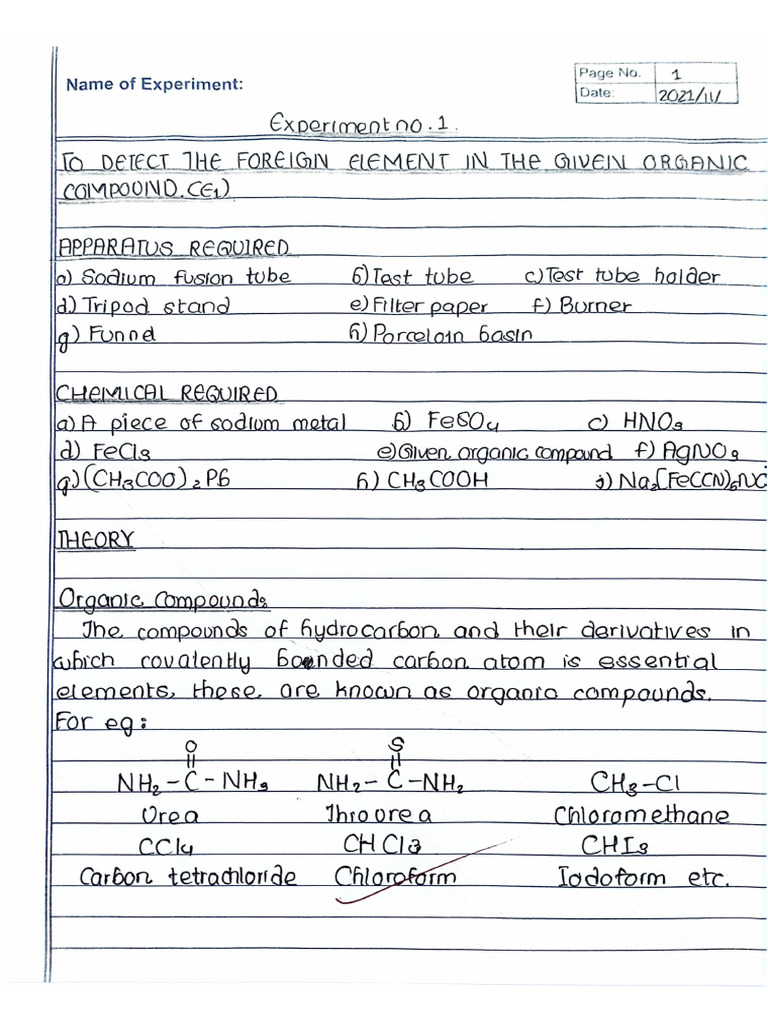 Name of Experiment:
Page No. 1
Date: 2021/11/
Experiment no. 1.
TO DETECT THE FOREIGN ELEMENT IN THE GIVEN ORGANIC
COMPOUND. (E1)
APPARATUS REQUIRED
a) Sodium fusion tube b) Test tube c) Test tube holder
d.) Tripod stand e) Filter paper f) Burner
g) Funnel h) Porcelain basin
CHEMICAL REQUIRED
a) A piece of sodium metal b) FeSO4 c) HNO3
d) FeCl3 e) Given organic compound f) AgNO3
g) (CH3COO)2Pb h) CH3COOH i) Na2[Fe(CN)5NO
THEORY
Organic Compounds
The compounds of hydrocarbon and their derivatives in
which covalently bounded carbon atom is essential
elements, these are known as organic compounds.
For eg:
O S
NH2-C-NH2 NH2-C-NH2 CH3-Cl
Urea Thiourea Chloromethane
CCl4 CHCl3 CHI3
Carbon tetrachloride Chloroform Iodoform etc.